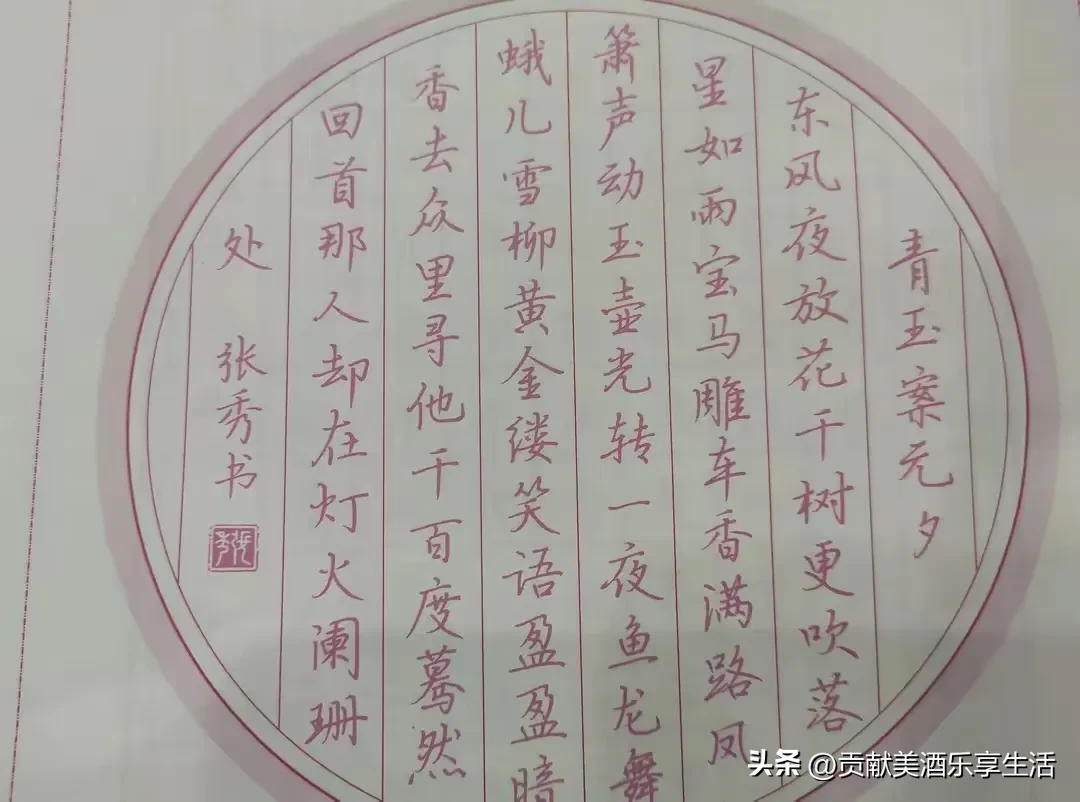 青玉案元夕
东风夜放花千树更吹落
星如雨宝马雕车香满路凤
箫声动玉壶光转一夜鱼龙舞
蛾儿雪柳黄金缕笑语盈盈暗
香去众里寻他千百度蓦然
回首那人却在灯火阑珊
处 张秀书
头条 @贡献美酒乐享生活